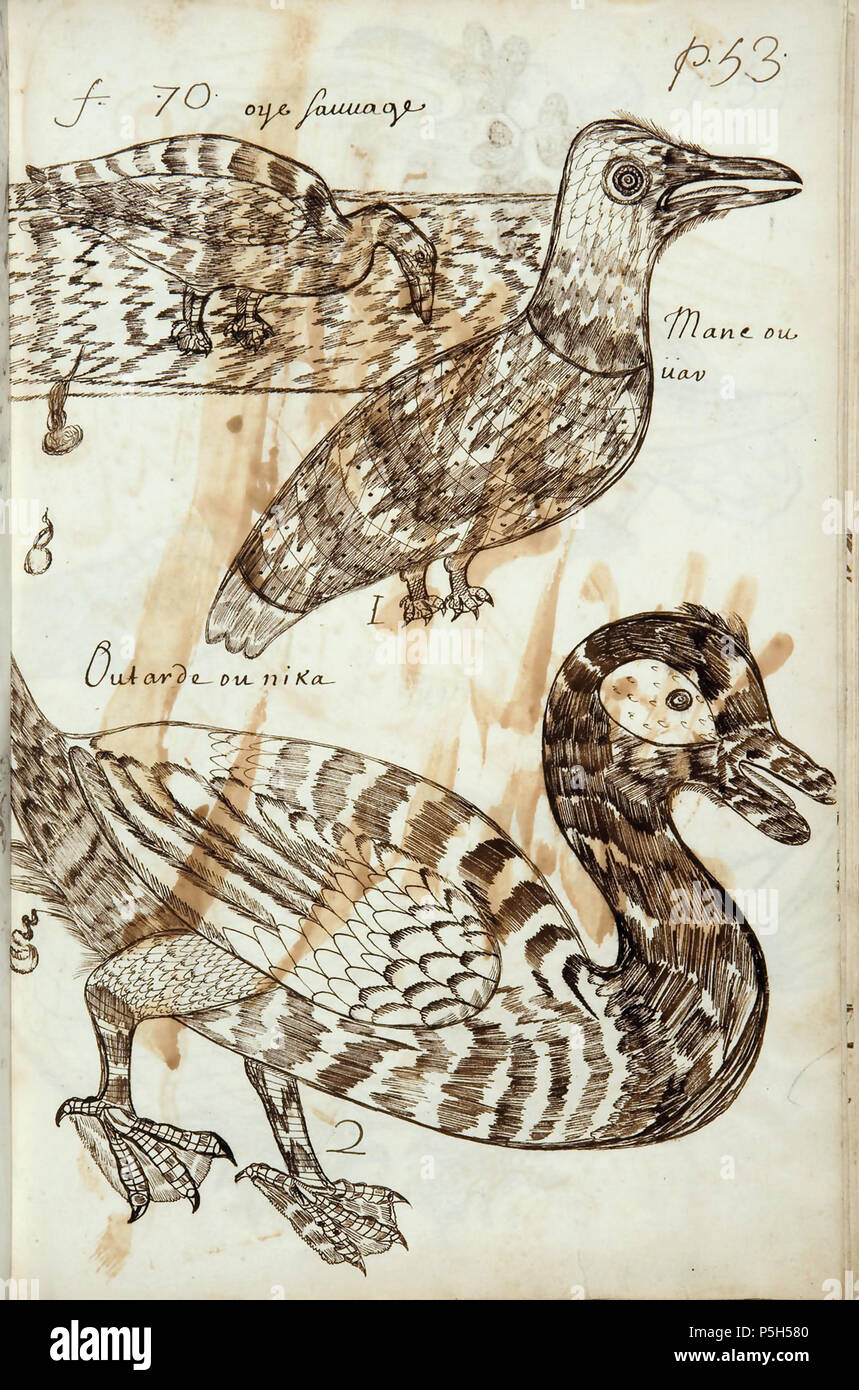 p. 53.
f. 70. oye sauuage
Mane ou
üau
1
Outarde ou nika
2
alamy
alamy
Image ID: P5H580
www.alamy.com